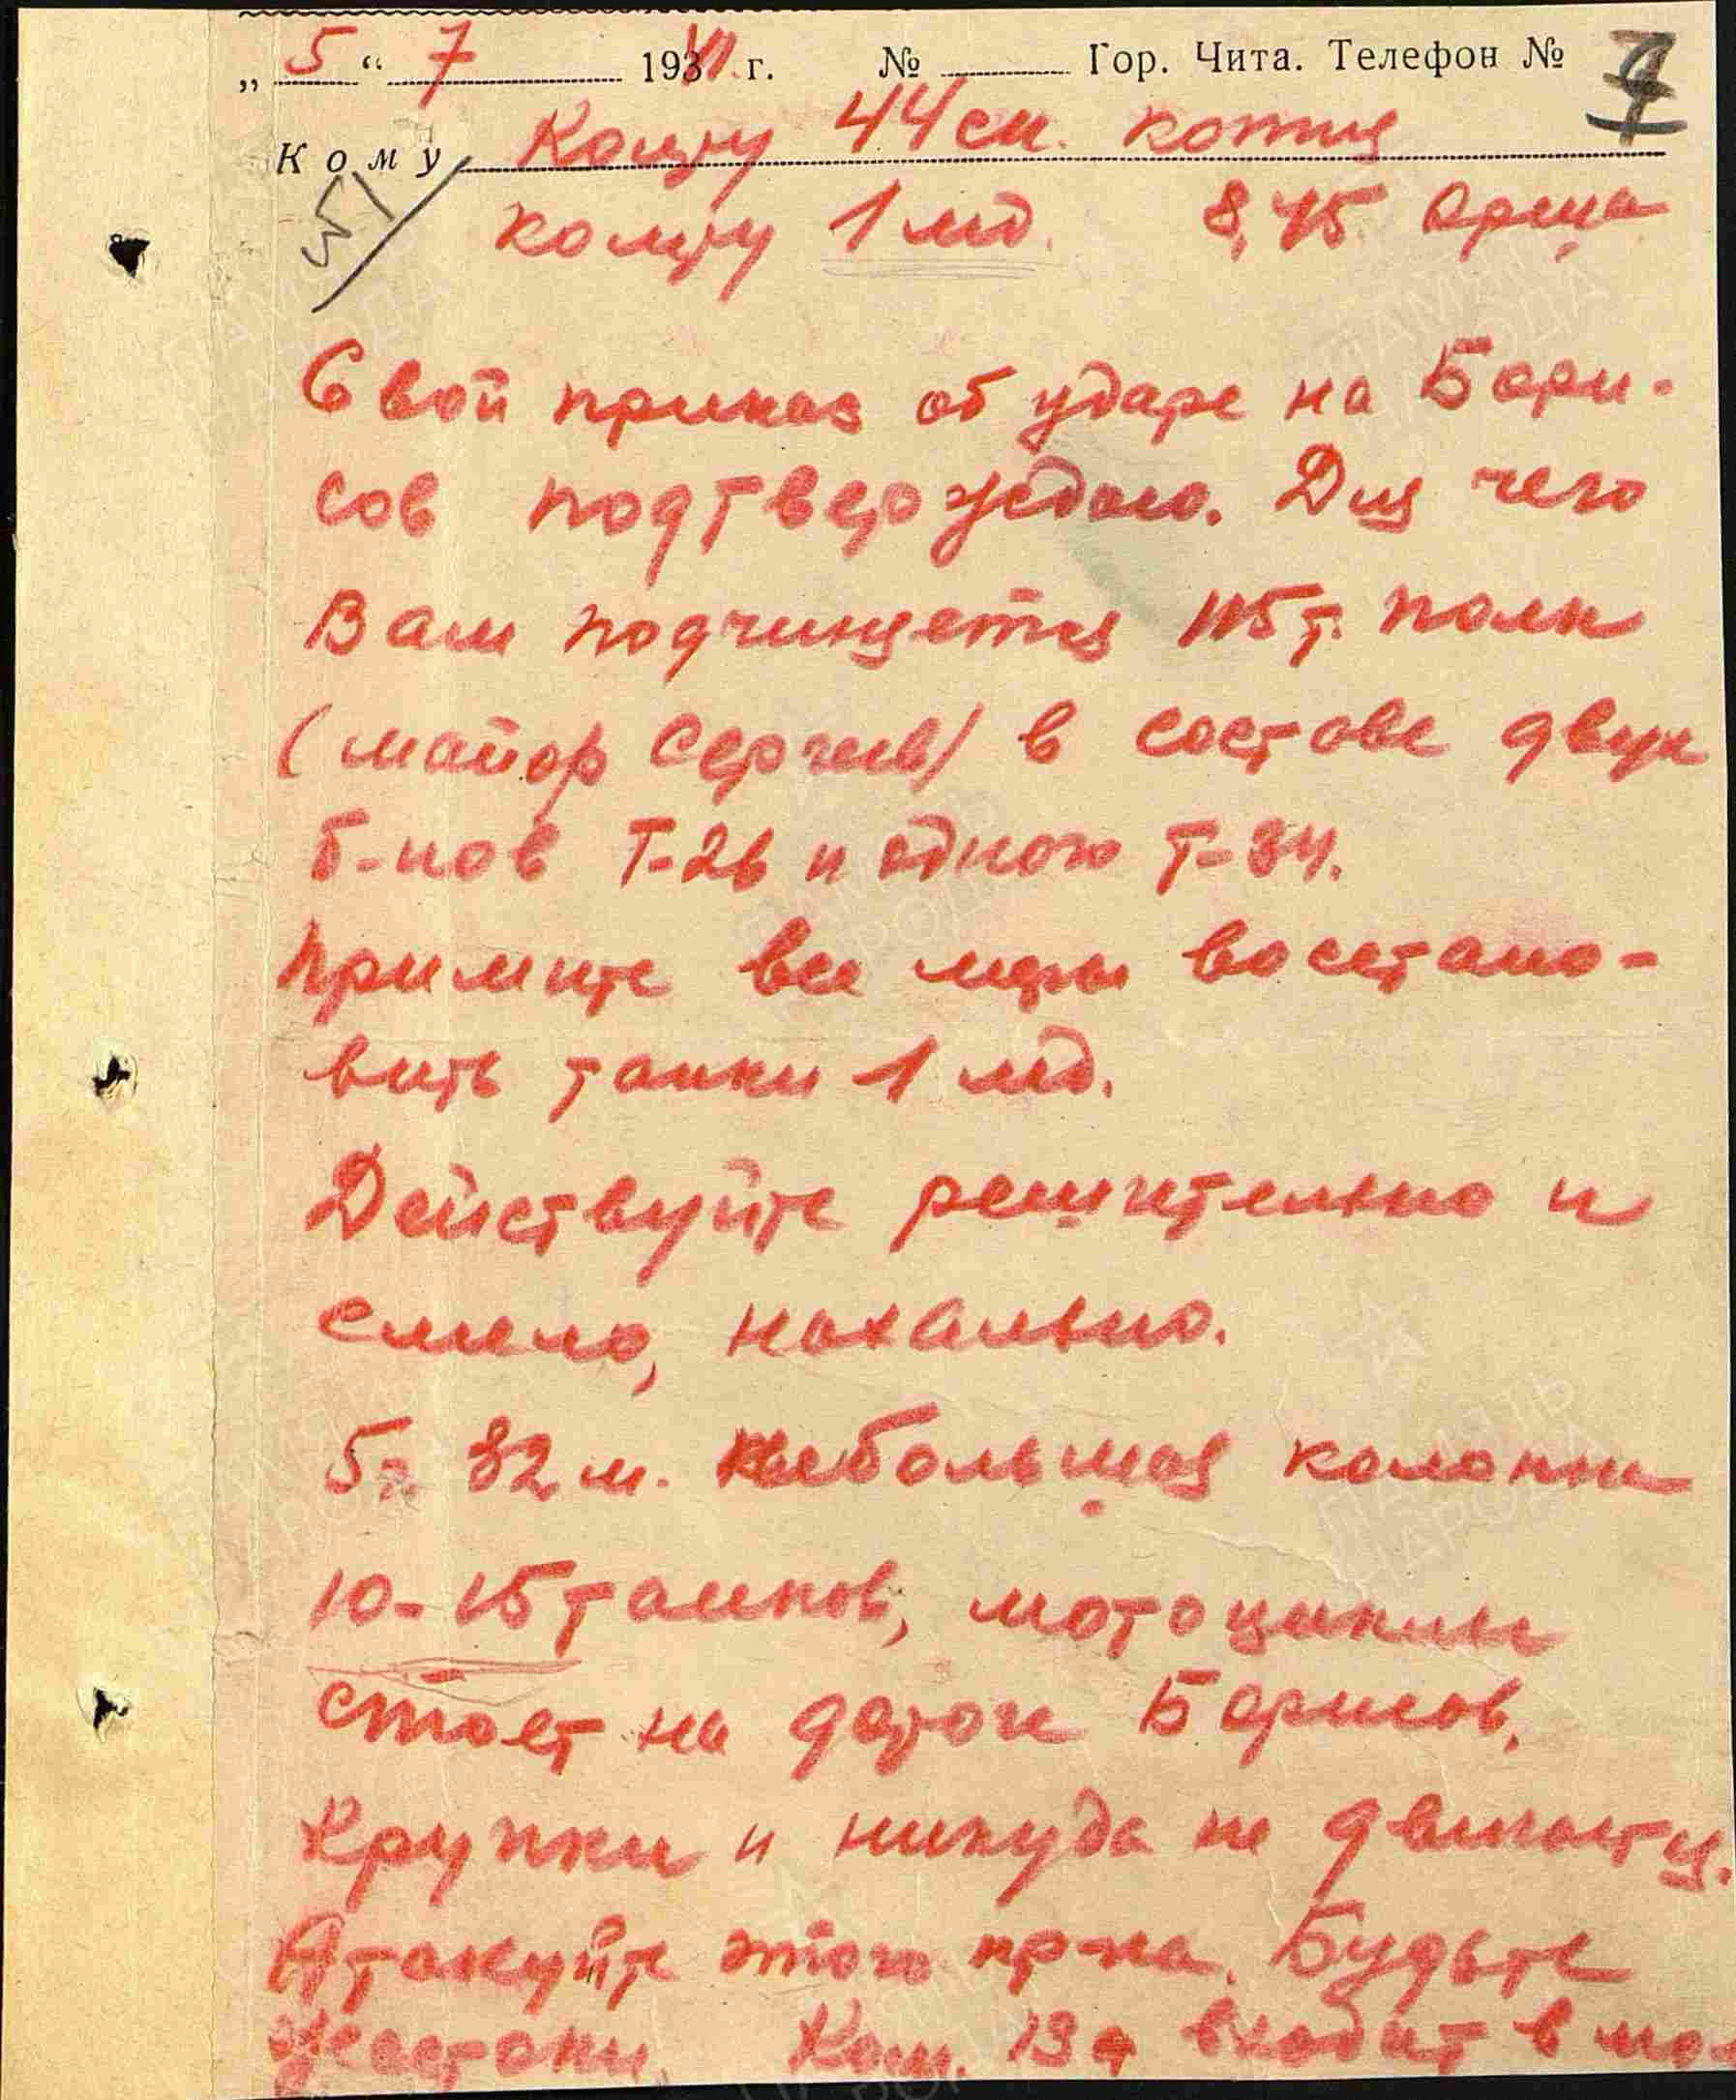 „5“ 7 1941 г. № Гор. Чита. Телефон № 7
Кому Кому 44 ск. копия
51
кому 1 мд. 8,45 Орша
Свой приказ об ударе на Бори-
сов подтверждаю. Для чего
Вам подчиняется 115 т. полк
(майор Сергеев) в составе двух
б-нов Т-26 и одного Т-34.
Примите все меры восстано-
вить танки 1 мд.
Действуйте решительно и
смело, нахально.
5 ч. 32 м. небольшая колонна
10-15 танков, мотоциклы
стоят на дороге Борисов,
Крупки и никуда не двигается.
Атакуйте этого пр-ка. Будьте
жестоки. Ком. 13 а входит в мо-